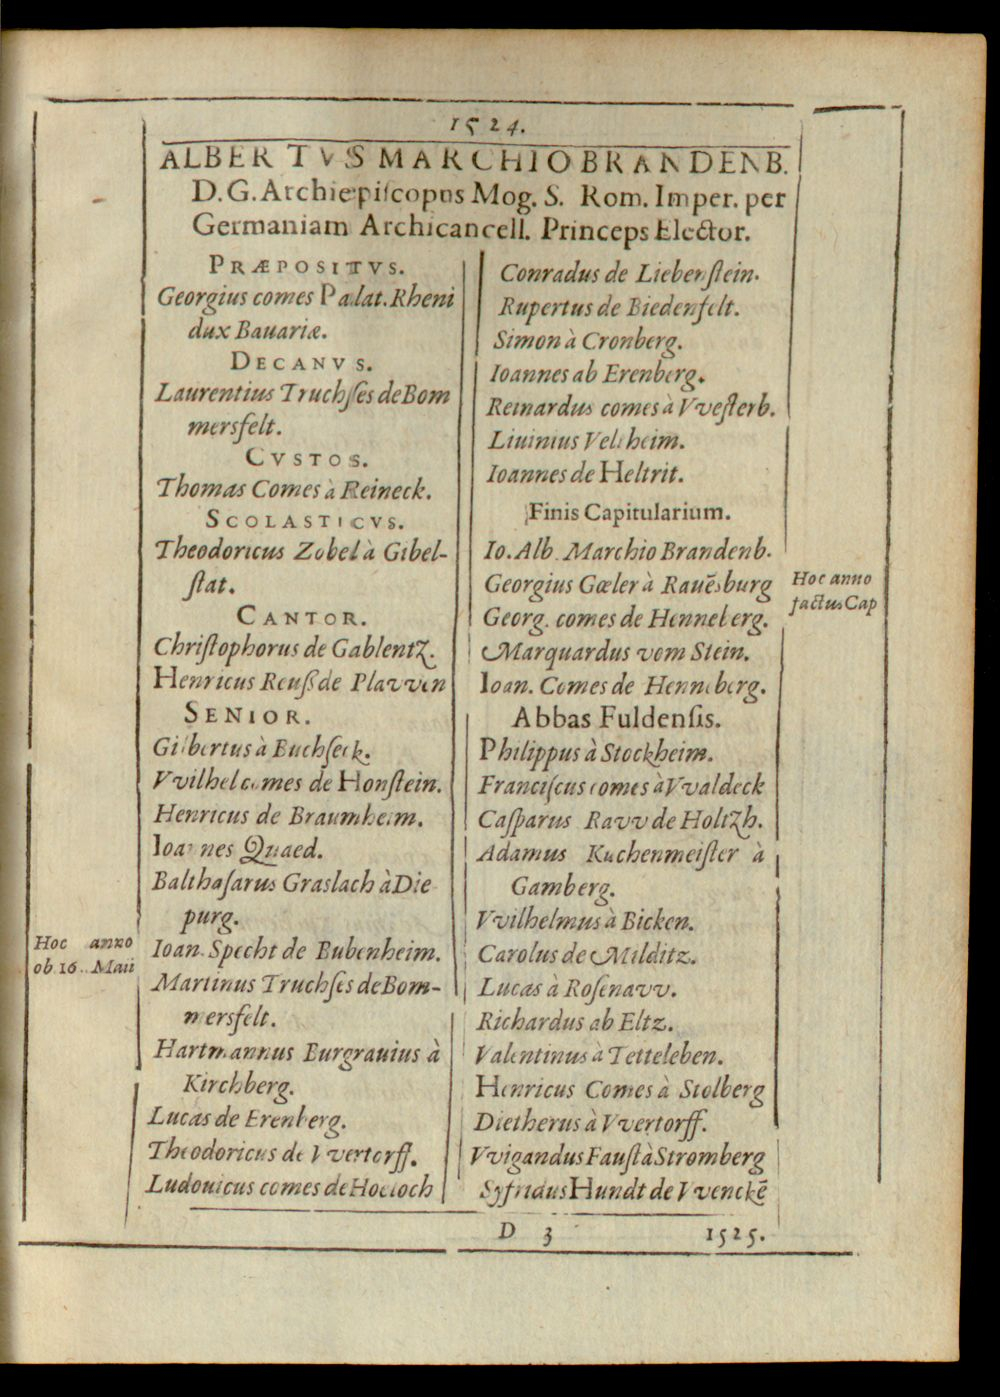 1524.
ALBERTVS MARCHIO BRANDENB.
D. G. Archiepiſcopus Mog. S. Rom. Imper. per
Germaniam Archicancell. Princeps Elector.
PRÆPOSITVS.
Georgius comes Palat. Rheni
dux Bauariæ.
DECANVS.
Laurentius Truchſes de Bom
mersfelt.
CVSTOS.
Thomas Comes à Reineck.
SCOLASTICVS.
Theodoricus Zobel à Gibel-
ſtat.
CANTOR.
Chriſtophorus de Gablentz.
Henricus Reuß de Plavven
SENIOR.
Gilbertus à Buchſeck.
VVilhel comes de Honſtein.
Henricus de Braumheim.
Ioannes Quaed.
Balthaſarus Graslach à Die
purg.
Hoc anno
ob. 16.. Maii
Ioan. Specht de Bubenheim.
Martinus Truchſes de Bom-
mersfelt.
Hartmannus Burgrauius à
Kirchberg.
Lucas de Erenberg.
Theodoricus de VVertorff.
Ludouicus comes de Hoeloch
Conradus de Liebenſtein.
Rupertus de Biedenfelt.
Simon à Cronberg.
Ioannes ab Erenberg.
Reinardus comes à VVeſterb.
Liuinius Veltheim.
Ioannes de Heltrit.
Finis Capitularium.
Io. Alb. Marchio Brandenb.
Georgius Gœler à Rauẽsburg
Hoc anno
factus Cap
Georg. comes de Henneberg.
Marquardus vom Stein.
Ioan. Comes de Henneberg.
Abbas Fuldenſis.
Philippus à Stockheim.
Franciſcus comes à VValdeck
Caſparus Ravv de Holtzh.
Adamus Kuchenmeiſter à
Gamberg.
VVilhelmus à Bicken.
Carolus de Milditz.
Lucas à Roſenavv.
Richardus ab Eltz.
Valentinus à Tetteleben.
Henricus Comes à Stolberg
Dietherus à VVertorff.
VVigandus Fauſt à Stromberg
Syfridus Hundt de VVenckẽ
D 3
1525.